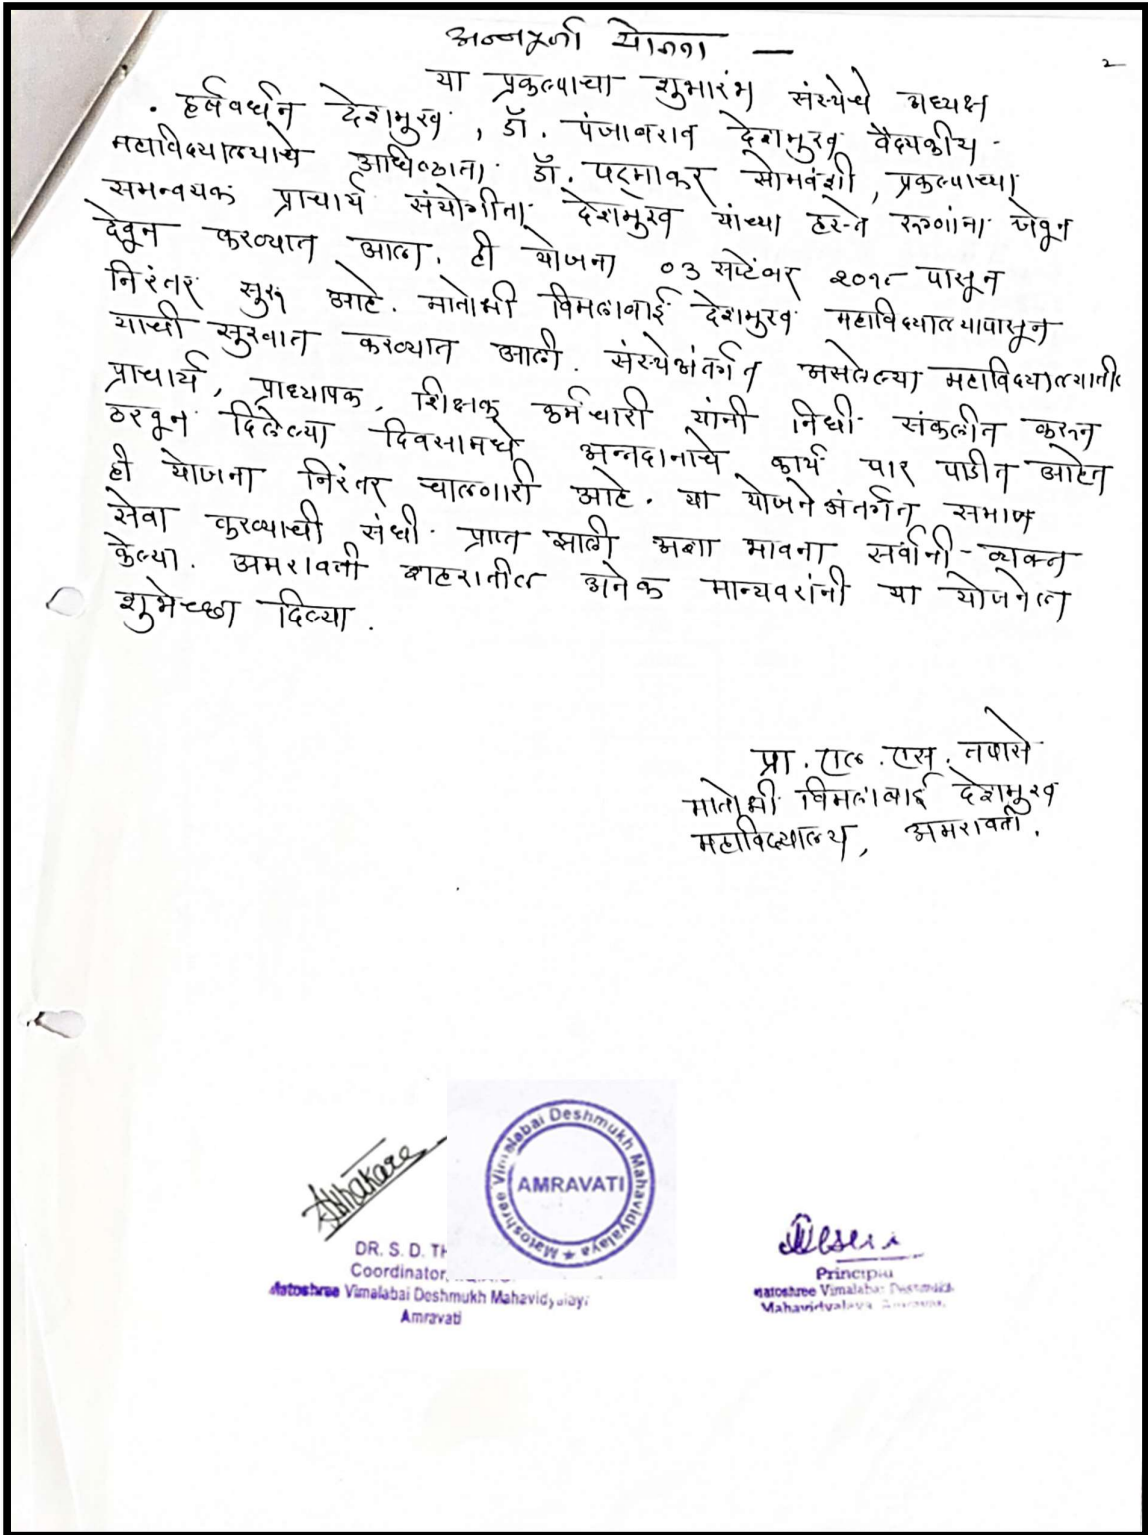 अन्नपूर्णा योजना —
2
या प्रकल्पाचा शुभारंभ संस्थेचे अध्यक्ष
. हर्षवर्धन देशमुख, डॉ. पंजाबराव देशमुख वैद्यकीय
महाविद्यालयाचे अधिष्ठाता डॉ. पद्माकर सोमवंशी, प्रकल्पाच्या
समन्वयक प्राचार्य संयोगीता देशमुख यांच्या हस्ते रुग्णांना जेवून
देवून करण्यात आला. ही योजना ०३ सप्टेंबर २०१८ पासून
निरंतर सुरू आहे. मातोश्री विमलाबाई देशमुख महाविद्यालयापासून
याची सुरवात करण्यात आली. संस्थेअंतर्गत असलेल्या महाविद्यालयातील
प्राचार्य, प्राध्यापक, शिक्षक कर्मचारी यांनी निधी संकलीत करून
ठरवून दिलेल्या दिवसामधे अन्नदानाचे कार्य पार पाडीत आहेत
ही योजना निरंतर चालणारी आहे. या योजने अंतर्गत समाज
सेवा करण्याची संधी प्राप्त झाली अशा भावना सर्वांनी व्यक्त
केल्या. अमरावती शहरातील अनेक मान्यवरांनी या योजनेला
शुभेच्छा दिल्या.
प्रा. एल. एस. तपासे
मातोश्री विमलाबाई देशमुख
महाविद्यालय, अमरावती.
Matoshree Vimalabai Deshmukh Mahavidyalaya
AMRAVATI
DR. S. D. TH
Coordinator,
Matoshree Vimalabai Deshmukh Mahavidyalaya
Amravati
Principal
Matoshree Vimalabai Deshmukh
Mahavidyalaya Amravati